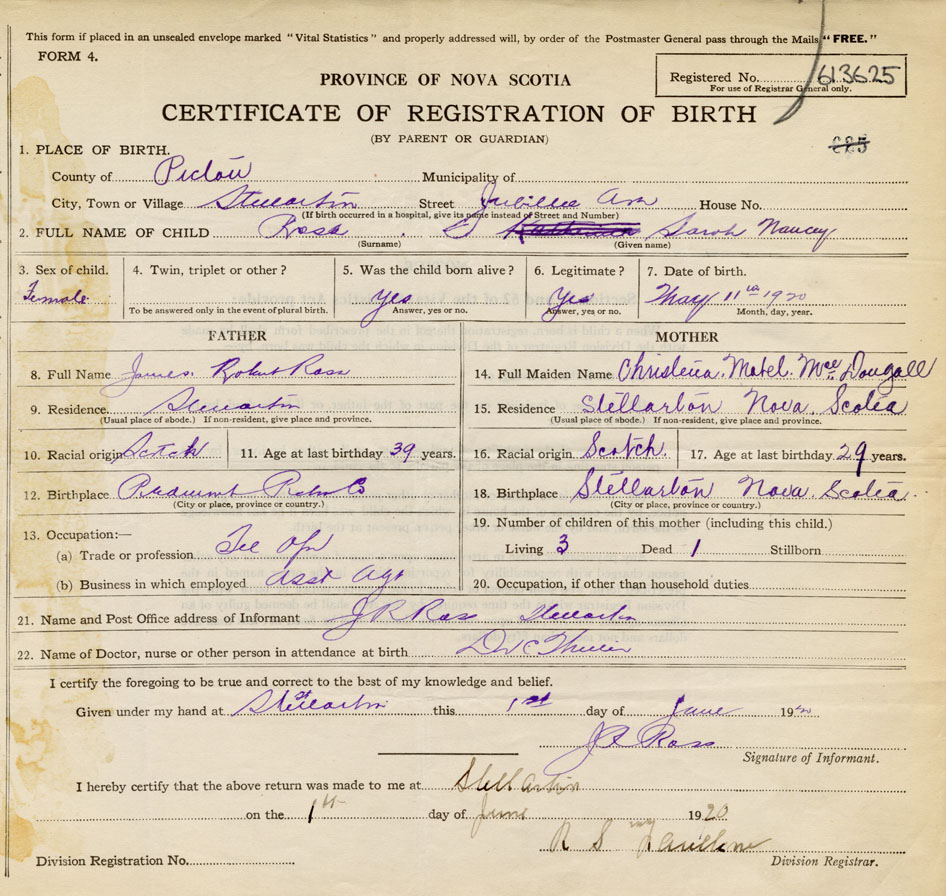 This form if placed in an unsealed envelope marked "Vital Statistics" and properly addressed will, by order of the Postmaster General pass through the Mails "FREE."
FORM 4.
Registered No. 613625
For use of Registrar General only.
PROVINCE OF NOVA SCOTIA
CERTIFICATE OF REGISTRATION OF BIRTH
(BY PARENT OR GUARDIAN)
1. PLACE OF BIRTH.
County of Pictou Municipality of
City, Town or Village Stellarton Street Jubilee Ave House No.
(If birth occurred in a hospital, give its name instead of Street and Number)
2. FULL NAME OF CHILD Ross Sarah Nancy
(Surname) (Given name)
3. Sex of child. 4. Twin, triplet or other? 5. Was the child born alive? 6. Legitimate? 7. Date of birth.
Female Yes Yes May 11th 1920
To be answered only in the event of plural birth. Answer, yes or no. Answer, yes or no. Month, day, year.
FATHER MOTHER
8. Full Name James Robert Ross
9. Residence Stellarton
(Usual place of abode.) If non-resident, give place and province.
10. Racial origin Scotch 11. Age at last birthday 39 years.
12. Birthplace Co
(City or place, province or country.)
13. Occupation:—
(a) Trade or profession Tel Opr
(b) Business in which employed Asst Agt
14. Full Maiden Name Christena Mabel MacDougall
15. Residence Stellarton Nova Scotia
(Usual place of abode.) If non-resident, give place and province.
16. Racial origin Scotch. 17. Age at last birthday 29 years.
18. Birthplace Stellarton Nova Scotia
(City or place, province or country.)
19. Number of children of this mother (including this child.)
Living 3 Dead 1 Stillborn
20. Occupation, if other than household duties
21. Name and Post Office address of Informant J R Ross Stellarton
22. Name of Doctor, nurse or other person in attendance at birth
I certify the foregoing to be true and correct to the best of my knowledge and belief.
Given under my hand at Stellarton this 1st day of June 1920
J R Ross
Signature of Informant.
I hereby certify that the above return was made to me at Stellarton
on the 1st day of June 1920
R S
Division Registration No. Division Registrar.